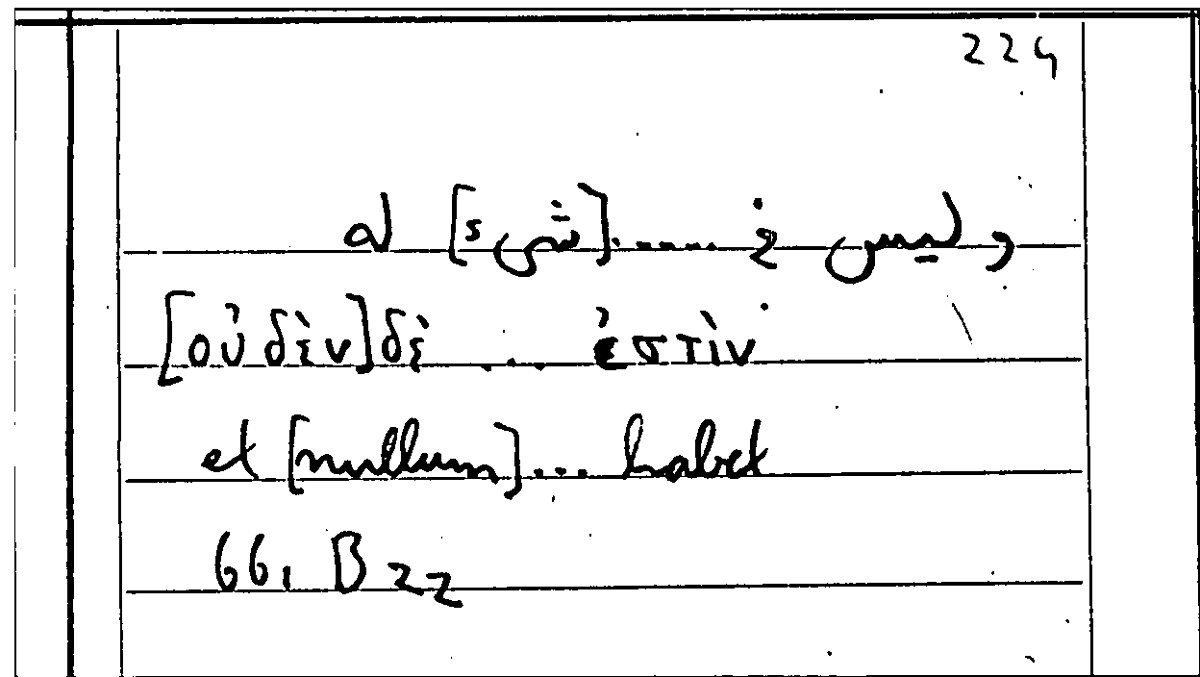 224
و ليس في .....[شىء] له
[οὐδὲν] δὲ ... ἐστὶν
et [nullum]... habet
661 B 22